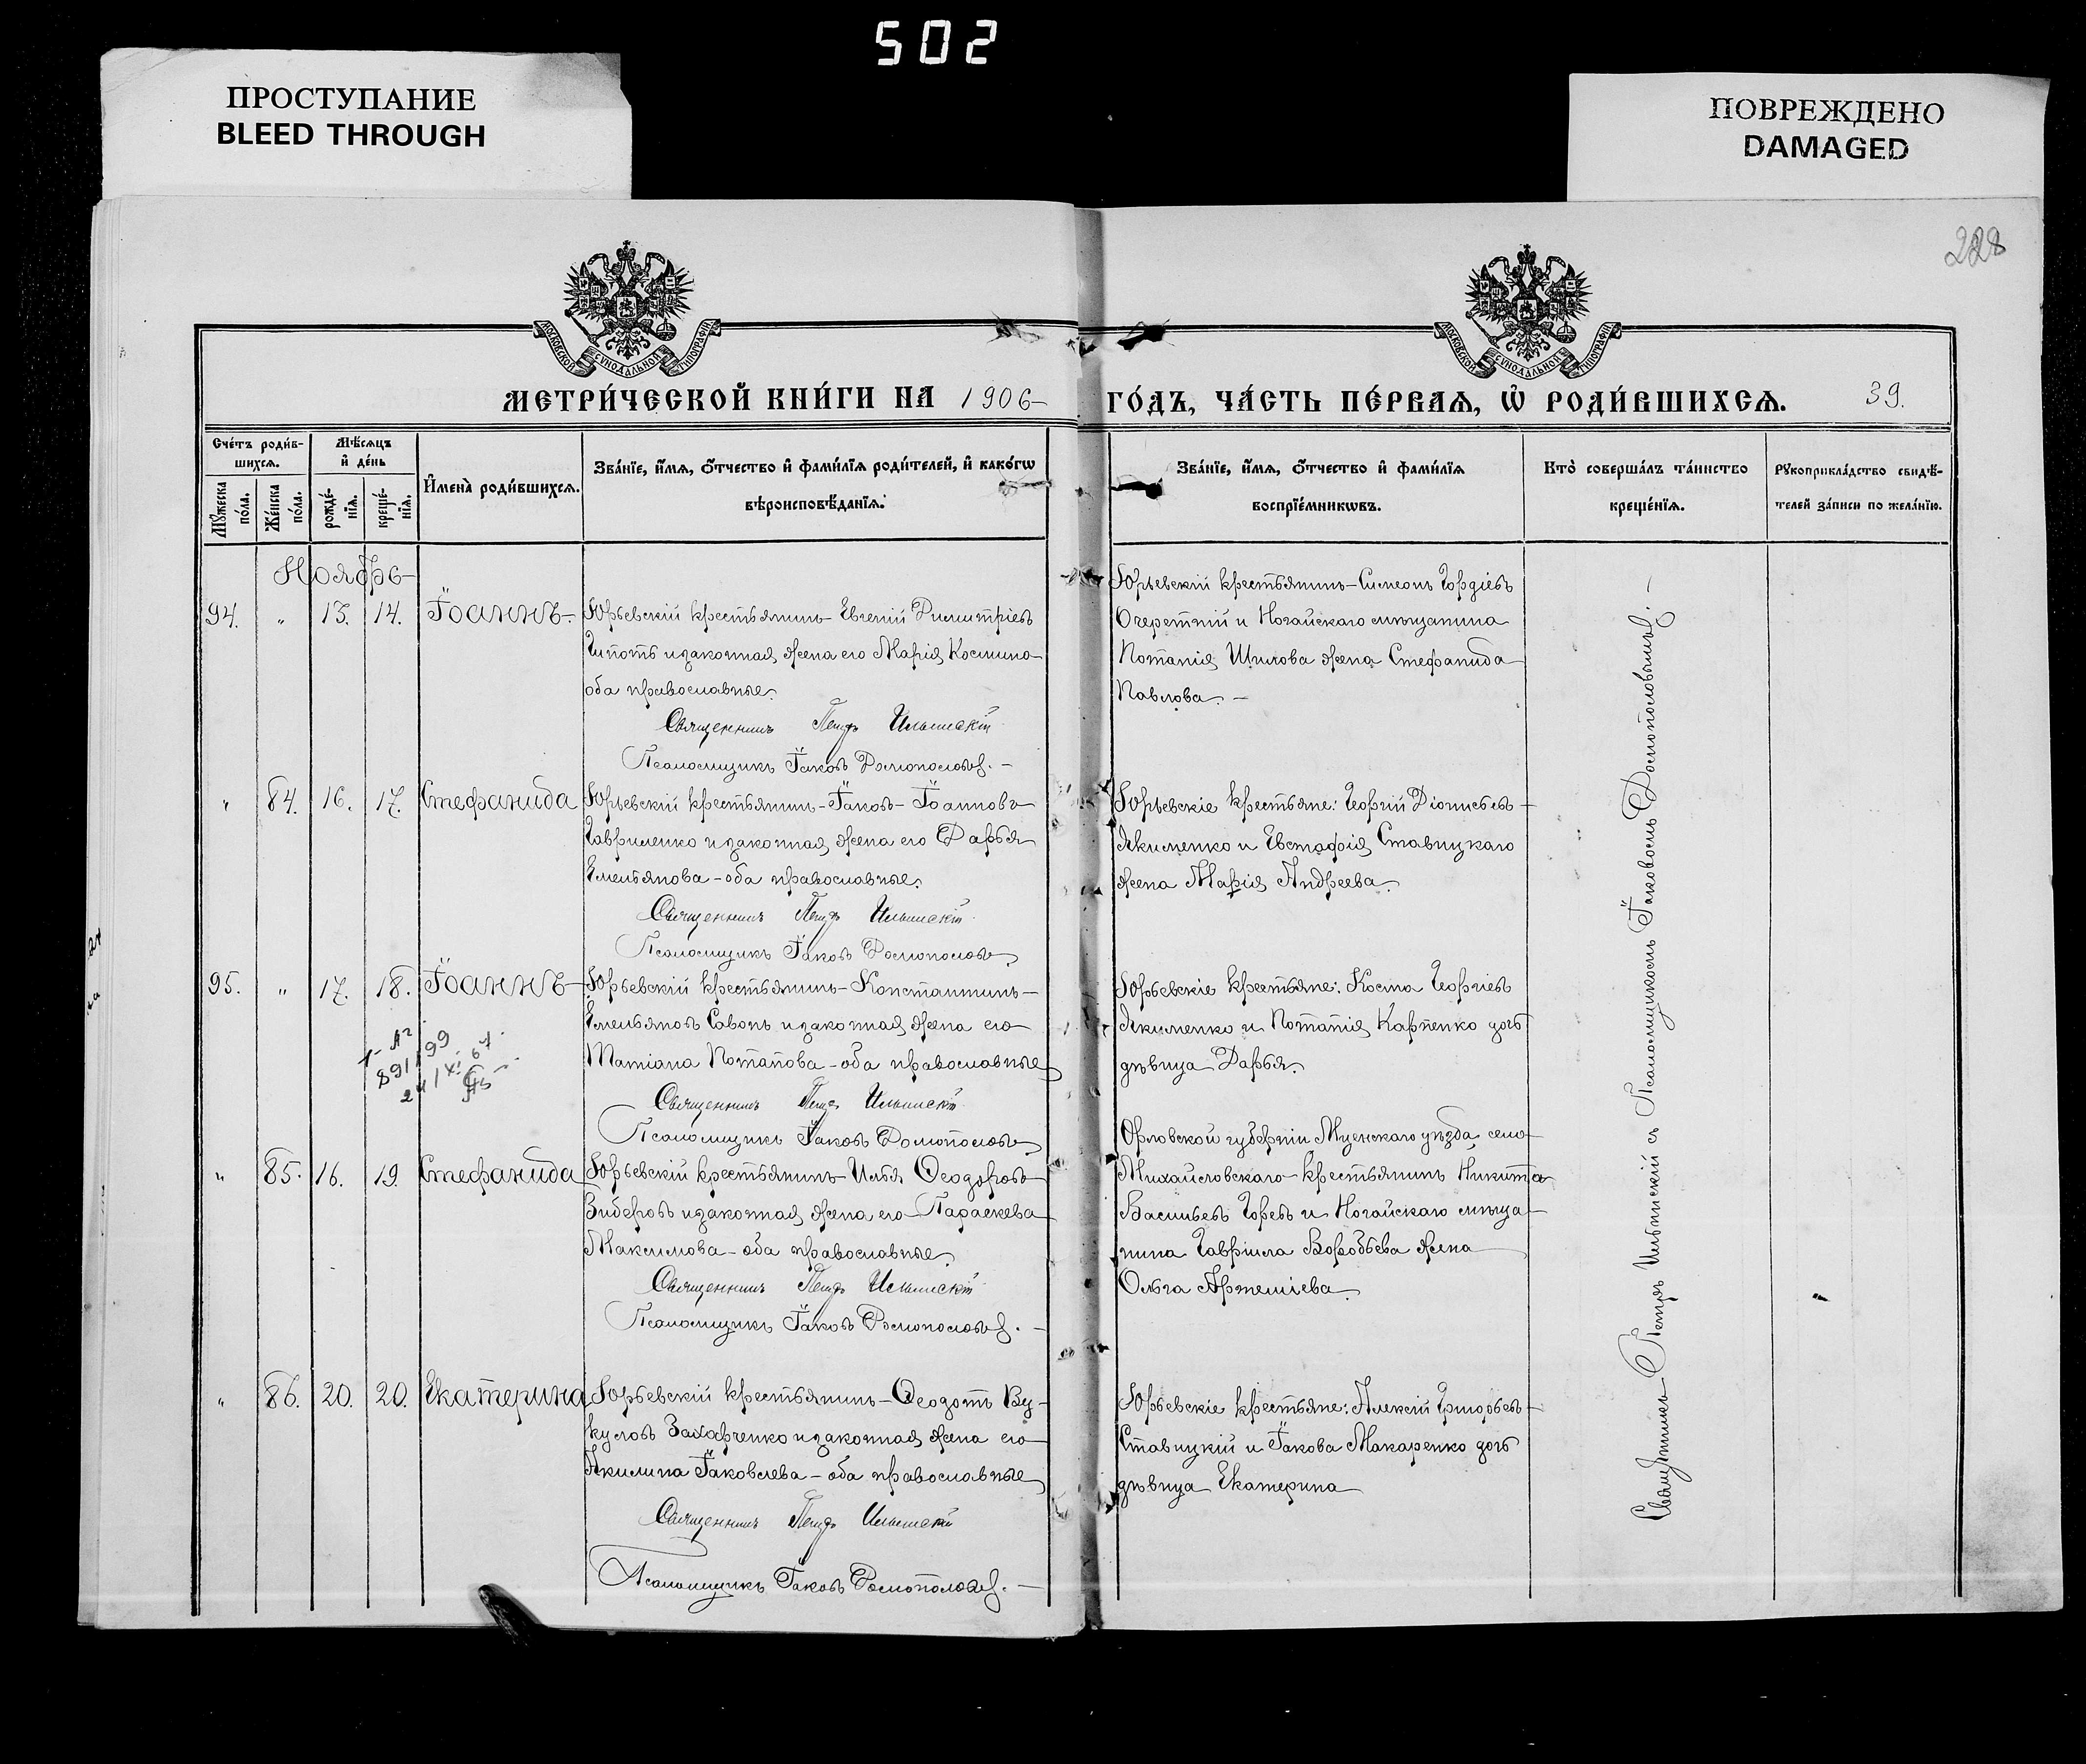 502
ПРОСТУПАНИЕ
BLEED THROUGH
ПОВРЕЖДЕНО
DAMAGED
228
МОСКОВСКОЙ СУНОДАЛЬНОЙ ТИПОГРАФІИ
МОСКОВСКОЙ СУНОДАЛЬНОЙ ТИПОГРАФІИ
МЕТРИ́ЧЕСКОЙ КНИ́ГИ НА 1906 ГО́ДЪ, ЧА́СТЬ ПЕ́РВАѦ, Ѡ҆ РОДИ́ВШИХСѦ. 39.
Сче́тъ роди́в-
шихсѧ.
Мꙋ́жеска по́ла.
Же́нска по́ла.
Мѣ́сѧцъ
и҆ де́нь
рожде́-
нїѧ.
креще́-
нїѧ.
И҆мена̀ роди́вшихсѧ.
Зва́нїе, и҆́мѧ, ѻ҆́тчество и҆ фами́лїѧ роди́телей, и҆ како́гѡ
вѣроисповѣ́данїѧ.
Зва́нїе, и҆́мѧ, ѻ҆́тчество и҆ фами́лїѧ
воспрїе́мникѡвъ.
Кто̀ соверша́лъ та́инство
креще́нїѧ.
Рꙋкоприкла́дство свидѣ́-
телей за́писи по жела́нїю.
Ноябрь
94. „ 13. 14. Іоаннъ
Юрьевскій крестьянинъ Евгеній Димитріевъ
и законная жена его Марія Космина
оба православные.
Священникъ Петръ Ильинскій
Псаломщикъ Іаковъ Домополовъ.
Юрьевскій крестьянинъ Симеонъ Гордіевъ
Очеретній и Ногайскаго мѣщанина
Потапія Шилова жена Стефанида
Павлова.
„ 84. 16. 17. Стефанида
Юрьевскій крестьянинъ Іаковъ Іоанновъ
Гавриленко и законная жена его Дарья
Емельянова - оба православные.
Священникъ Петръ Ильинскій
Псаломщикъ Іаковъ Домополовъ
Юрьевскіе крестьяне: Георгій Діонисьевъ
Якименко и Евстафія Ставицкаго
жена Марія Андреева.
95. „ 17. 18. Іоаннъ
Юрьевскій крестьянинъ Константинъ
Емельяновъ Савонъ и законная жена его
Татіана Потапова - оба православные
Священникъ Петръ Ильинскій
Псаломщикъ Іаковъ Домополовъ
891/99
Юрьевскіе крестьяне: Косма Георгіевъ
Якименко и Потапія Карпенко дочь
дѣвица Дарья.
„ 85. 16. 19. Стефанида
Юрьевскій крестьянинъ Илья Ѳеодоровъ
Зибровъ и законная жена его Параскева
Максимова - оба православные
Священникъ Петръ Ильинскій
Псаломщикъ Іаковъ Домополовъ.
Орловской губерніи Мценскаго уѣзда село
Михайловскаго крестьянинъ Никита
Васильевъ Горевъ и Ногайскаго мѣща-
нина Гавріила Воробьева жена
Ольга Артеміева.
„ 86. 20. 20. Екатерина
Юрьевскій крестьянинъ Ѳеодотъ Ву-
куловъ Захарченко и законная жена его
Акилина Іаковлева - оба православные
Священникъ Петръ Ильинскій
Псаломщикъ Іаковъ Домополовъ.
Юрьевскіе крестьяне: Алексій Григорьевъ
Ставицкій и Іакова Макаренко дочь
дѣвица Екатерина
Священникъ Петръ Ильинскій съ Псаломщикомъ Іаковомъ Домополовымъ.